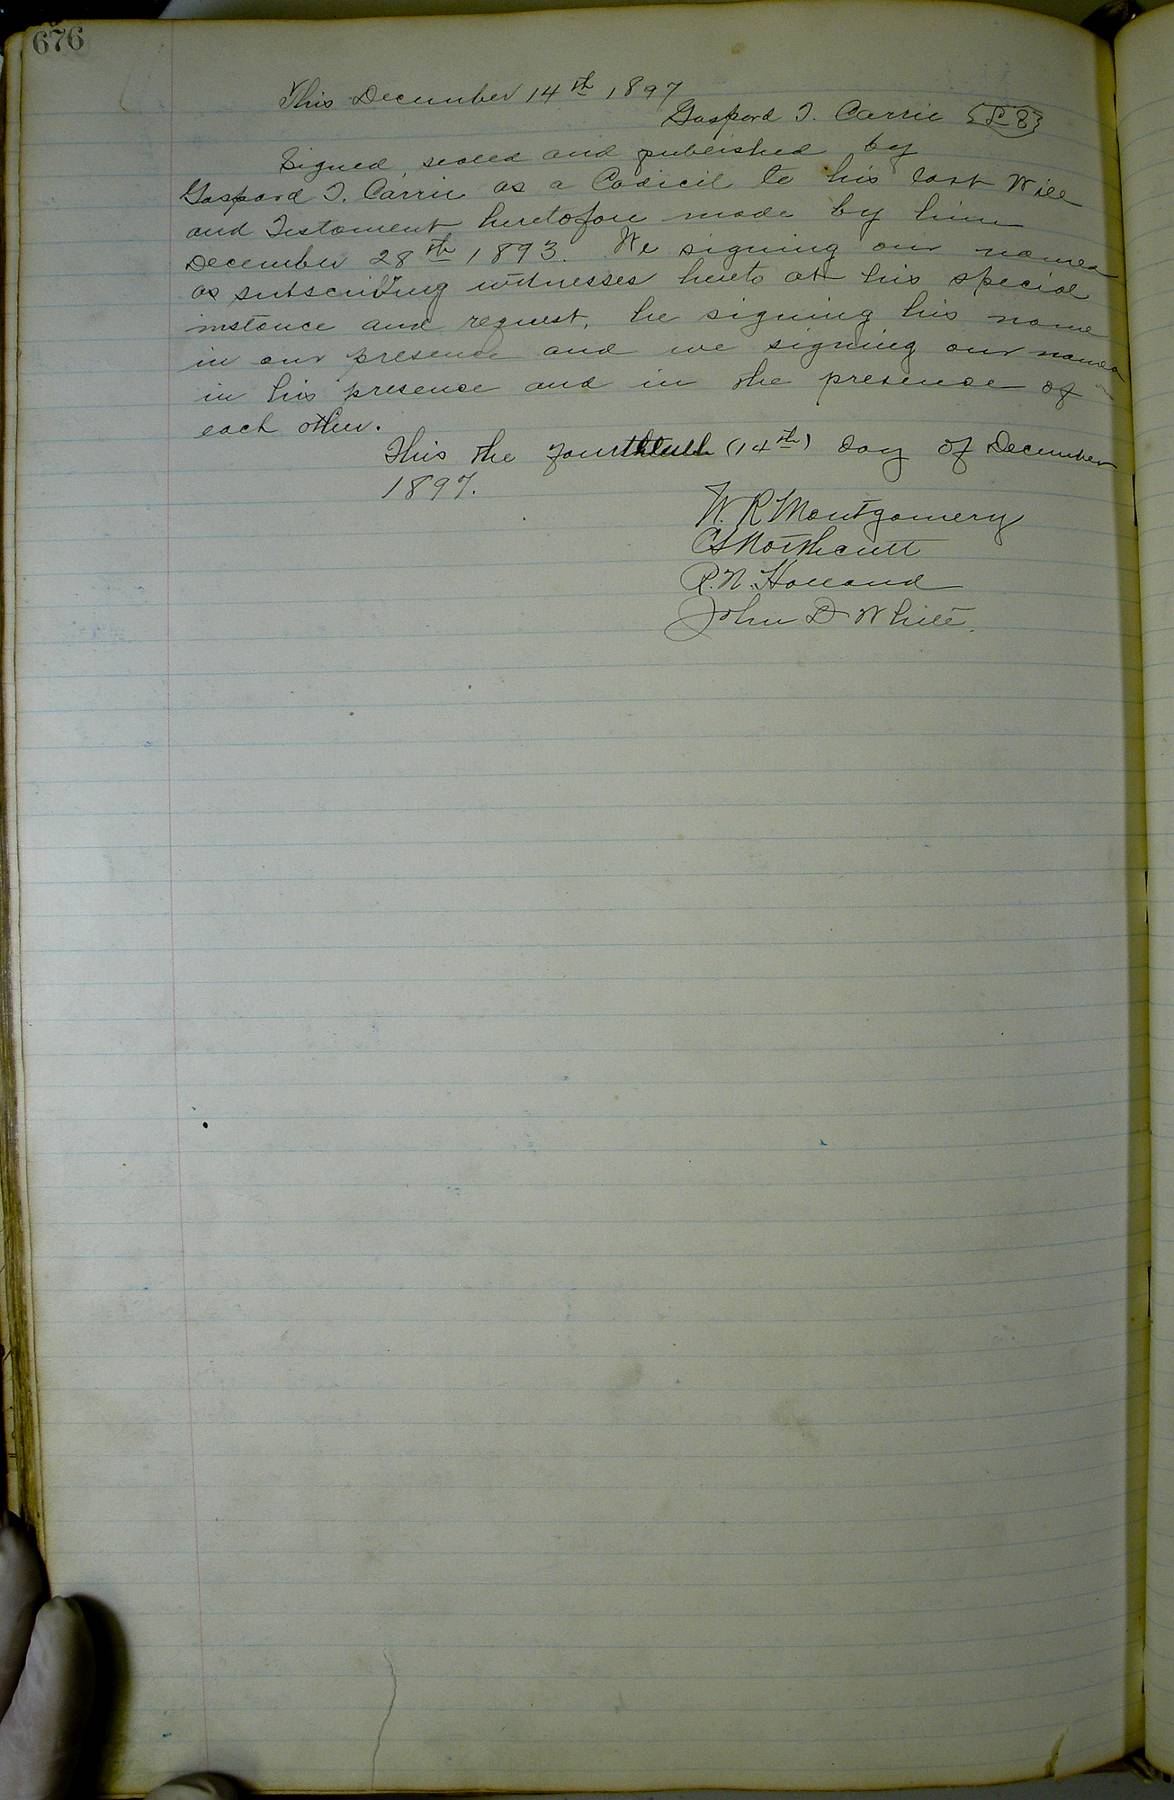 676
This December 14th 1897
Gaspard T. Carrie {L.S}
Signed, sealed and published by
Gaspard T. Carrie as a Codicil to his last Will
and Testament heretofore made by him
December 28th 1893. We signing our names
as subscribing witnesses hereto at his special
instance and request, he signing his name
in our presence and we signing our names
in his presence and in the presence of
each other.
This the (14th) day of December
1897.
W. R. Montgomery
Northcutt
R. N. Holland
John D White.